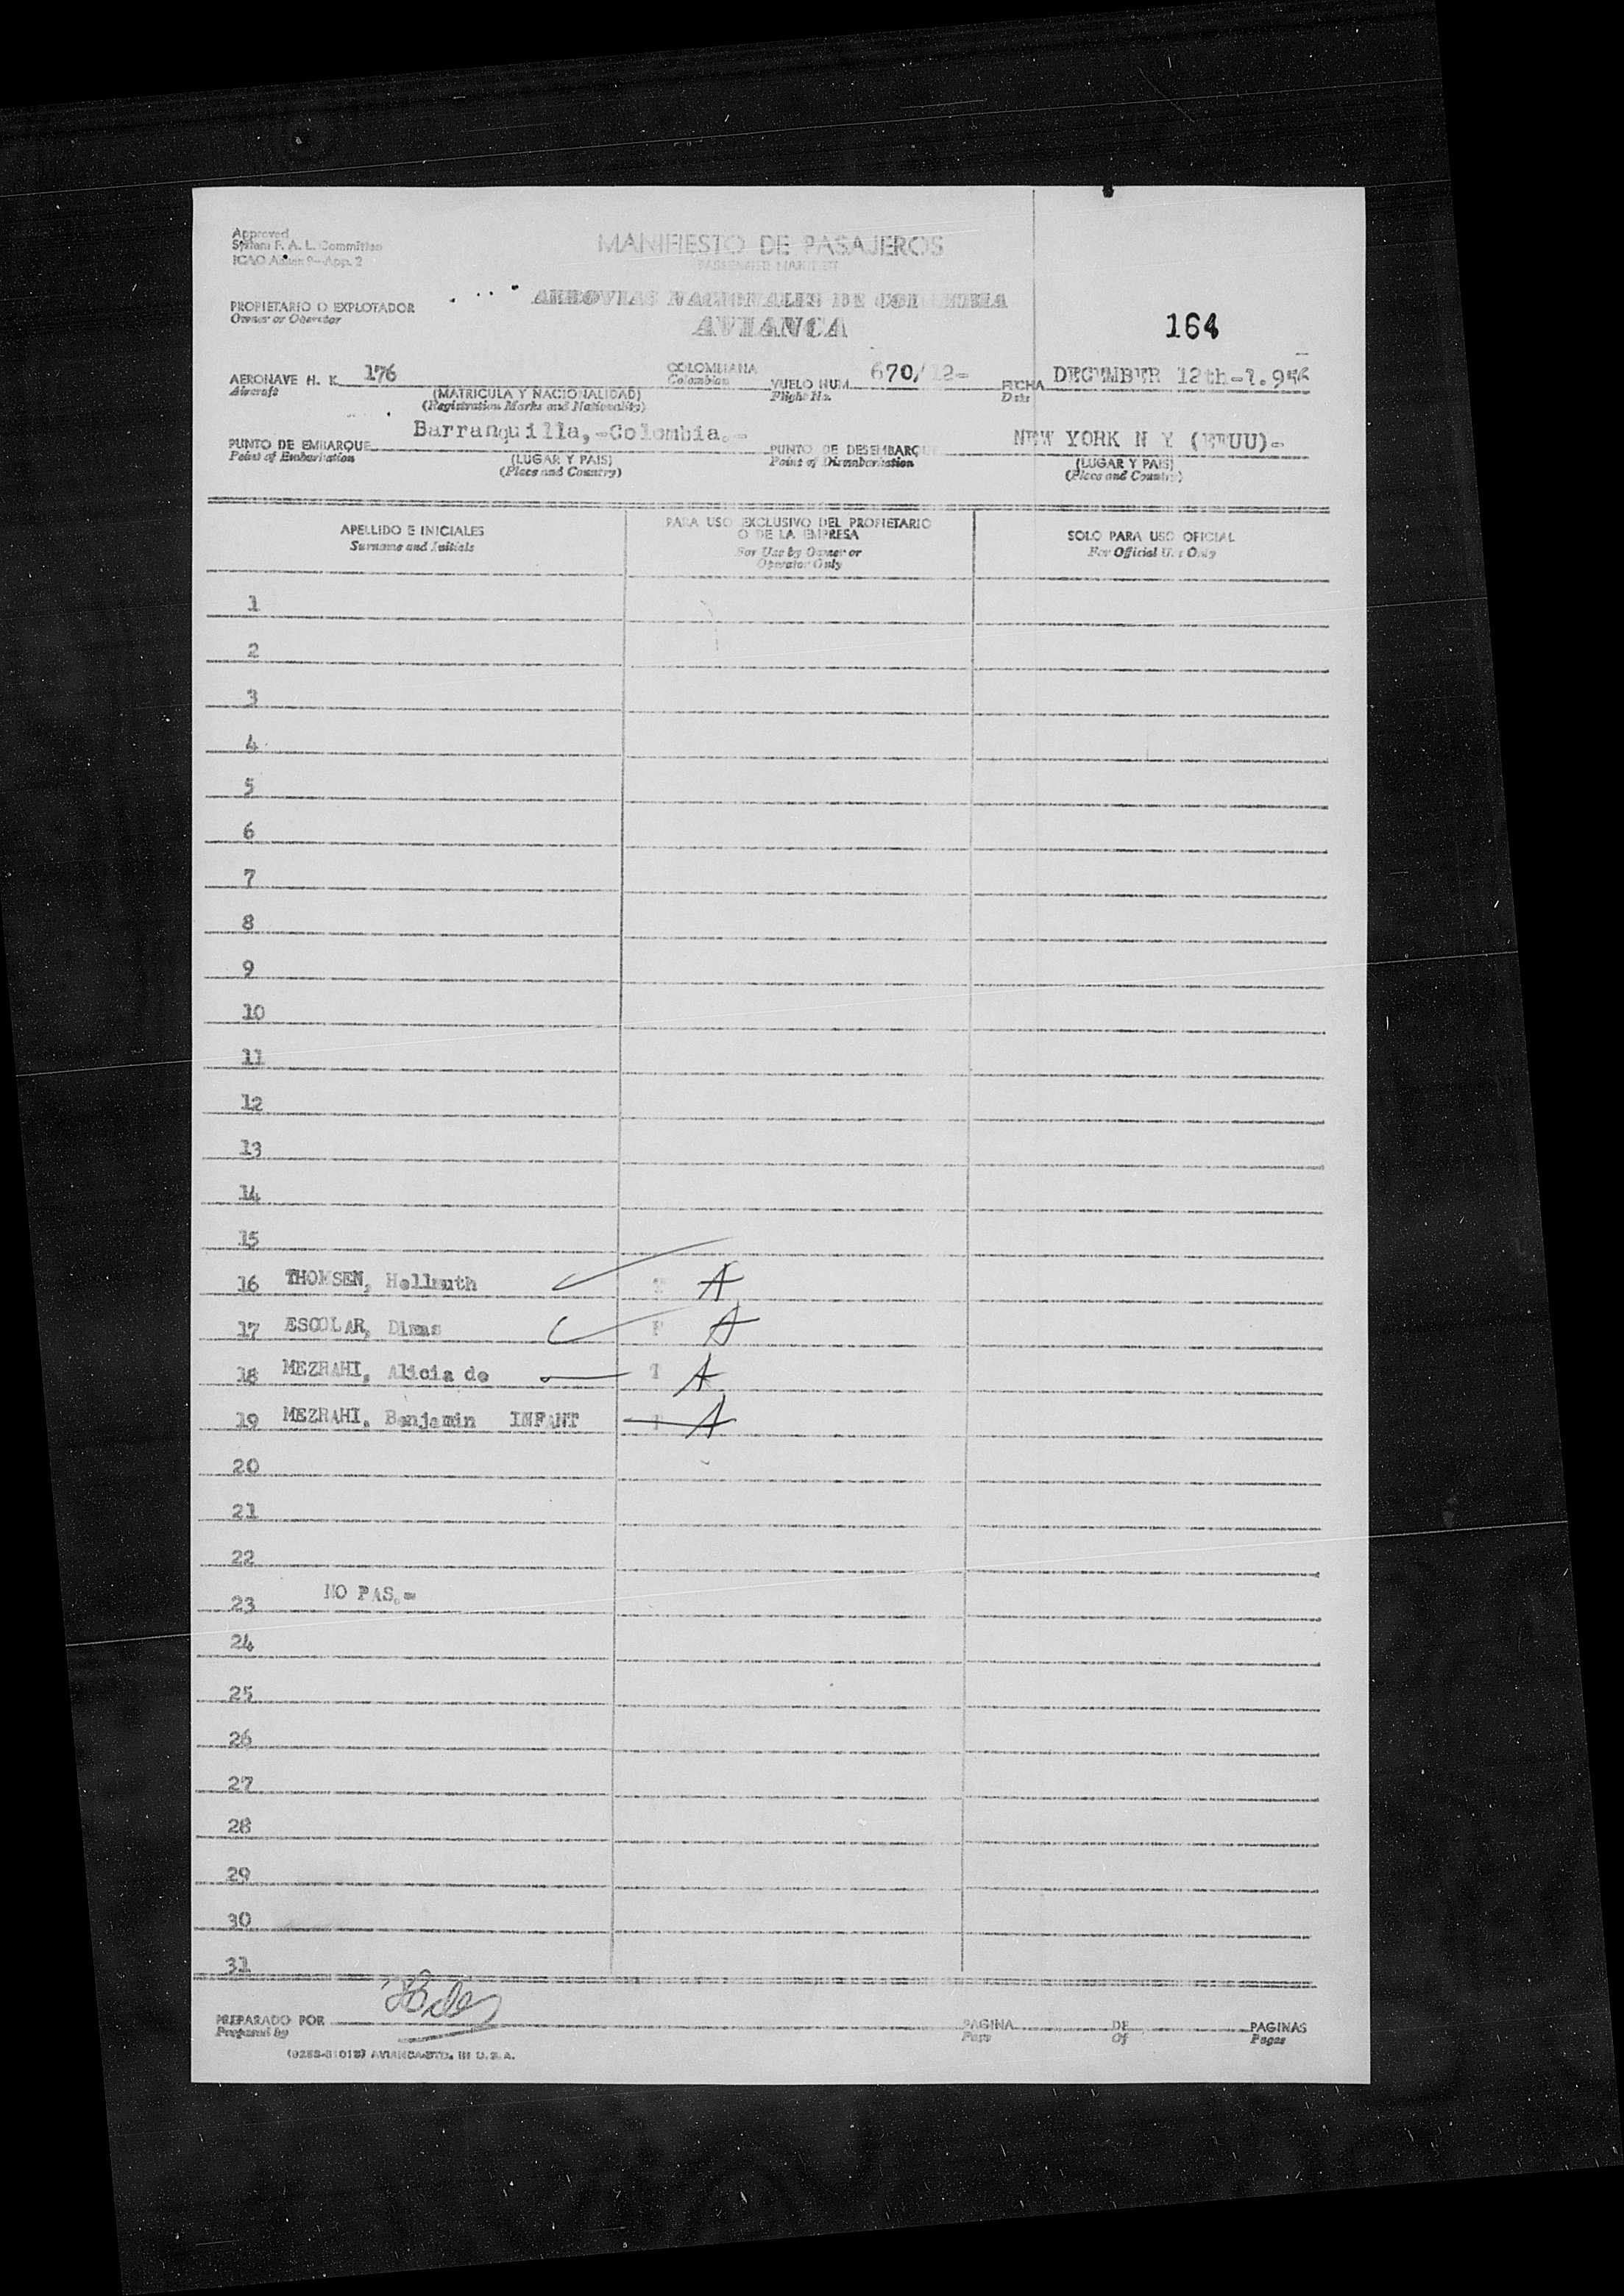 Approved
System F. A. L. Committee
ICAO Annex 9-App. 2
MANIFIESTO DE PASAJEROS
PASSENGER MANIFEST
PROPIETARIO O EXPLOTADOR
Owner or Operator
AEROVIAS NACIONALES DE COLOMBIA
AVIANCA
164
AERONAVE H. K. 176 COLOMBIANA VUELO NUM. 670/12- FECHA DECEMBER 12th-1.956
Aircraft Colombian Flight No. Date
(MATRICULA Y NACIONALIDAD)
(Registration Marks and Nationality)
PUNTO DE EMBARQUE Barranquilla,-Colombia.- PUNTO DE DESEMBARQUE NEW YORK N Y (EEUU)-
Point of Embarkation Point of Disembarkation
(LUGAR Y PAIS) (LUGAR Y PAIS)
(Place and Country) (Place and Country)
APELLIDO E INICIALES
Surname and Initials
PARA USO EXCLUSIVO DEL PROPIETARIO
O DE LA EMPRESA
For Use by Owner or
Operator Only
SOLO PARA USO OFICIAL
For Official Use Only
1
2
3
4
5
6
7
8
9
10
11
12
13
14
15
16 THOMSEN, Hellmuth A
17 ESCOLAR, Dimas F A
18 MEZRAHI, Alicia de T A
19 MEZRAHI, Benjamin INFANT A
20
21
22
23 NO PAS.=
24
25
26
27
28
29
30
31
PREPARADO POR PAGINA DE PAGINAS
Prepared by Page Of Pages
AVIANCA-STD. IN U. S. A.